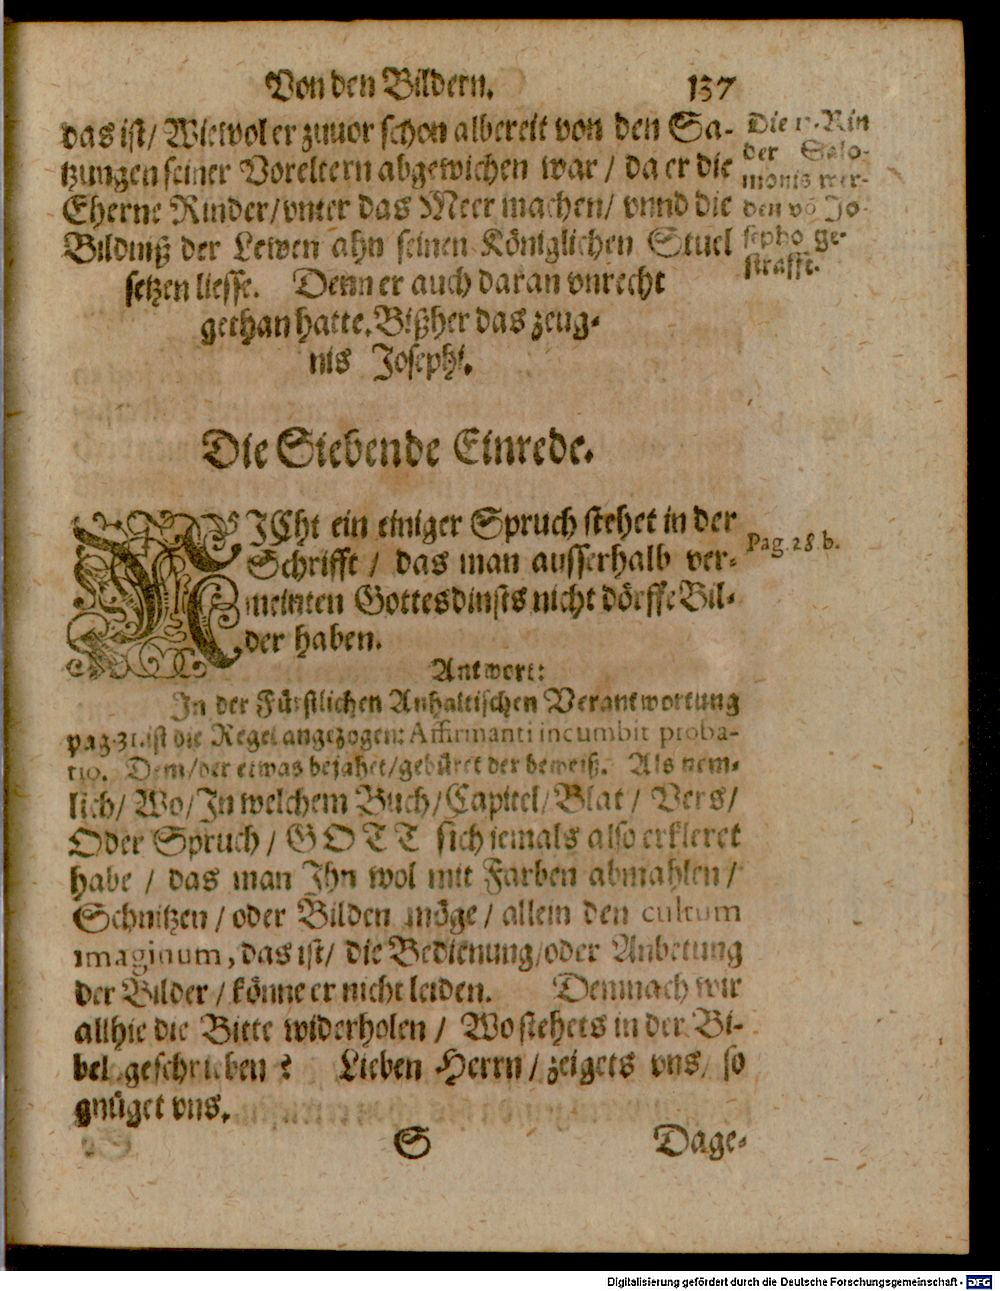 Von den Bildern. 137
das ist/ Wiewol er zuuor schon albereit von den Sa-
tzungen seiner Voreltern abgewichen war / da er die
Eherne Rinder/vnter das Meer machen/ vnnd die
Bildniß der Lewen ahn seinen Königlichen Stuel
setzen liesse. Denn er auch daran vnrecht
gethan hatte. Bißher das zeug-
nis Josephi.
Die 12. Rin
der Salo-
monis wer-
den võ Jo-
sepho ge-
strafft.
Die Siebende Einrede.
NJCht ein einiger Spruch stehet in der
Schrifft / das man ausserhalb ver-
meinten Gottesdinsts nicht dörffe Bil-
der haben.
Pag. 28 b.
Antwort:
In der Fürstlichen Anhaltischen Verantwortung
pag. 31. ist die Regel angezogen: Affirmanti incumbit proba-
tio. Dem/der etwas bejahet/gebüret der beweiß. Als nem-
lich/ Wo/In welchem Buch/Capitel/Blat / Vers/
Oder Spruch / GOTT sich iemals also erkleret
habe / das man Ihn wol mit Farben abmahlen /
Schnitzen / oder Bilden möge / allein den cultum
imaginum, das ist/ die Bedienung/oder Anbetung
der Bilder / könne er nicht leiden. Demnach wir
allhie die Bitte widerholen / Wo stehets in der Bi-
bel geschrieben? Lieben Herrn / zeigets vns, so
gnüget vns.
S Dage-
Digitalisierung gefördert durch die Deutsche Forschungsgemeinschaft - DFG